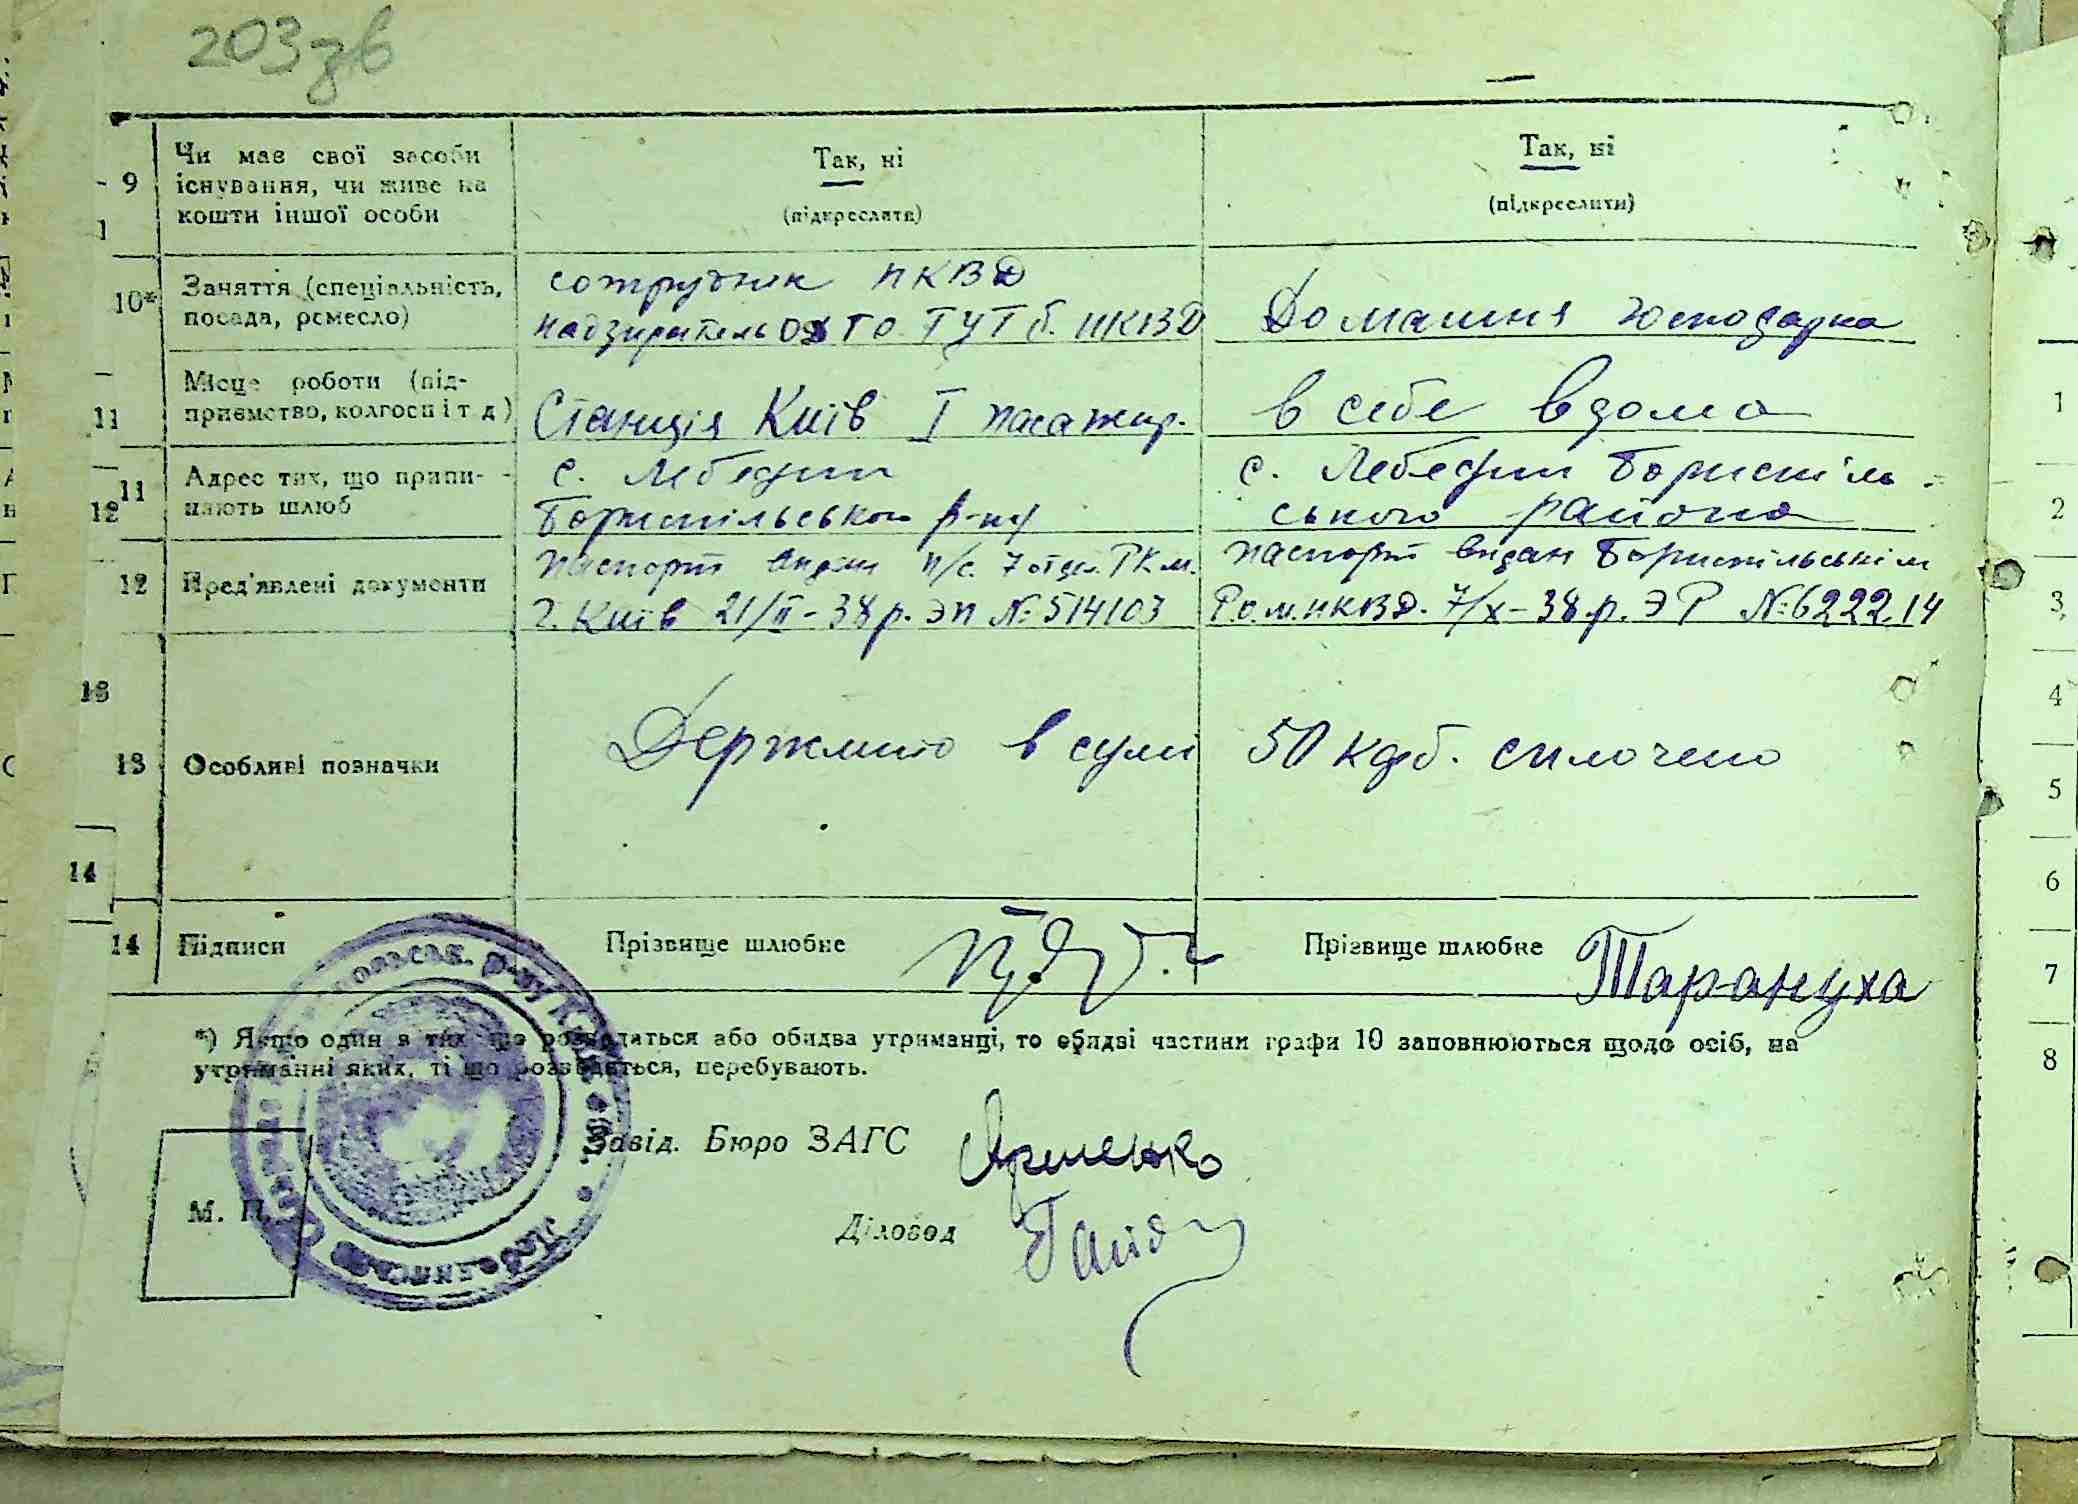 203 зв
9 Чи має свої засоби існування, чи живе на кошти іншої особи
Так, ні
(підкреслити)
Так, ні
(підкреслити)
10* Заняття (спеціальність, посада, ремесло)
сотрудник НКВД
надзиратель ТО НКВД
Домашня господарка
11 Місце роботи (підприємство, колгосп і т д)
Станція Київ I пасажир.
в себе вдома
11 Адрес тих, що припиняють шлюб
12
с. Лебедин
Бориспільського р-ну
с. Лебедин Бориспільського района
12 Пред'явлені документи
паспорт видан п/с. 7 отдел. РКМ.
г. Київ 21/II-38 р. ЭП № 514103
паспорт видан Бориспільськім
Р.о.м. НКВД. 7/X-38.р. ЭР № 622214
13
13 Особливі позначки
Держмито в сумі 50 карб. сплочено
14
14 Підписи
Прізвище шлюбне
Прізвище шлюбне Тарануха
*) Якщо один з тих що розводяться або обидва утриманці, то обидві частини графи 10 заповнюються щодо осіб, на
утриманні яких, ті що розводяться, перебувають.
Завід. Бюро ЗАГС
Діловод
М. П.
1
2
3
4
5
6
7
8